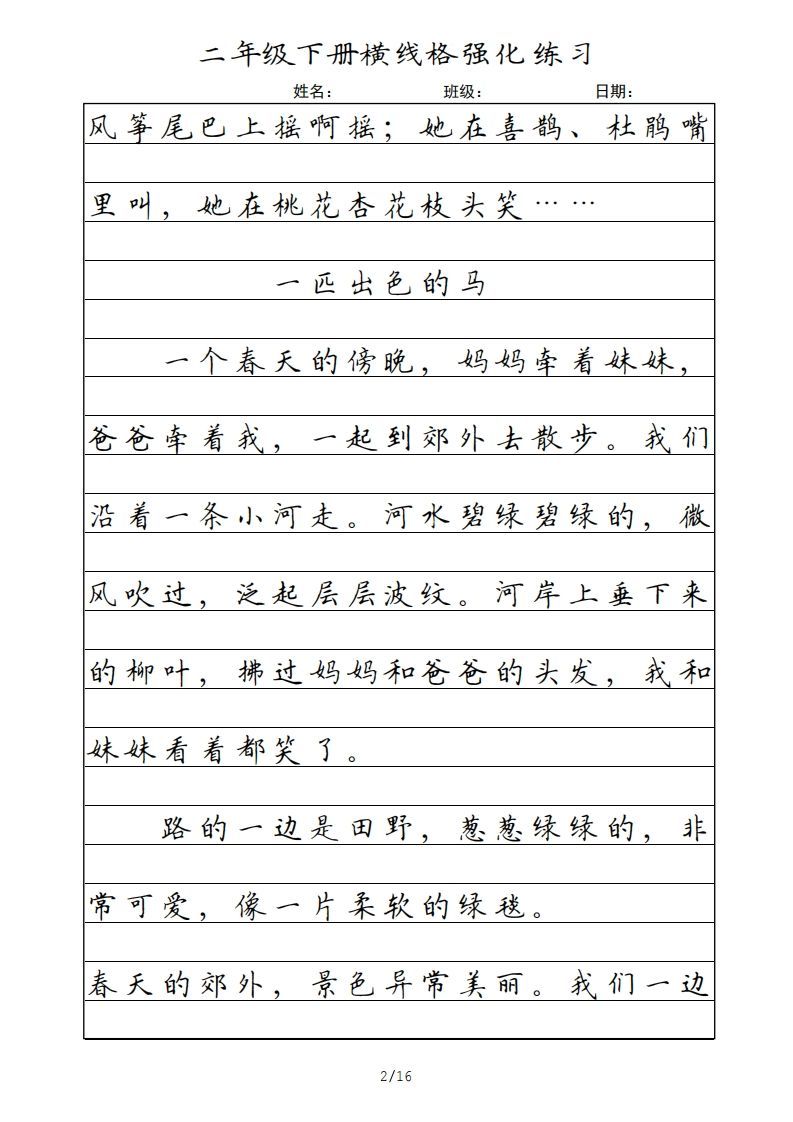 二年级下册横线格强化练习
姓名: 班级: 日期:
风筝尾巴上摇啊摇；她在喜鹊、杜鹃嘴
里叫，她在桃花杏花枝头笑……
一匹出色的马
一个春天的傍晚，妈妈牵着妹妹，
爸爸牵着我，一起到郊外去散步。我们
沿着一条小河走。河水碧绿碧绿的，微
风吹过，泛起层层波纹。河岸上垂下来
的柳叶，拂过妈妈和爸爸的头发，我和
妹妹看着都笑了。
路的一边是田野，葱葱绿绿的，非
常可爱，像一片柔软的绿毯。
春天的郊外，景色异常美丽。我们一边
2/16